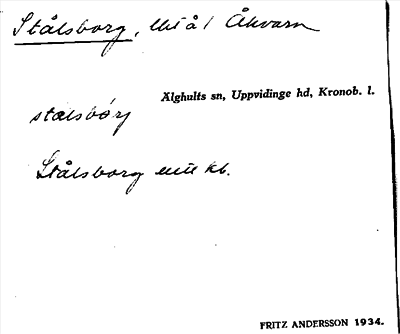 Stålsborg, Åkvarn
Älghults sn, Uppvidinge hd, Kronob. l.
stalsbórj
Stålsborg enl kb.
FRITZ ANDERSSON 1934.